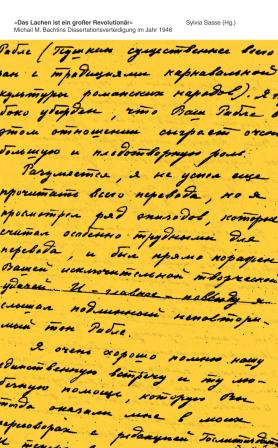 «Das Lachen ist ein großer Revolutionär» Sylvia Sasse (Hg.)
Michail M. Bachtins Dissertationsverteidigung im Jahr 1946
Рабле (Пушкин существеннее всего
зан с традициями карнавальной
культуры романских народов). Я г
боко убежден, что Ваш Рабле в
этом отношении сыграет очень
большую и плодотворную роль.
Разумеется, я не успел еще
прочитать всего перевода, но я
просмотрел ряд эпизодов, которые
считал особенно трудными для
перевода, и был прямо поражен
Вашей исключительной творческой
удачей. И – главное – повсюду я
слышал подлинный неповтори-
мый тон Рабле.
Я очень хорошо помню нашу
единственную встречу и ту лю-
безную помощь, которую Вы
тогда оказали мне в моих
переговорах с редакцией Гослитизд